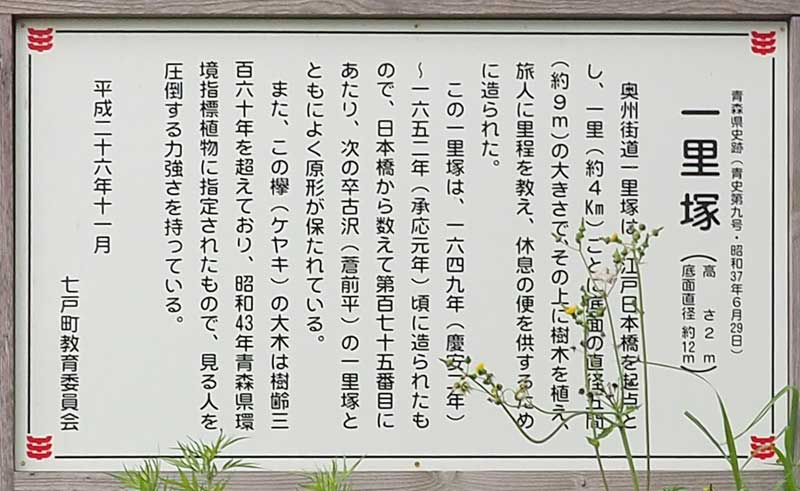 青森県史跡（青史第九号・昭和37年6月29日）
一里塚
（高　さ２ｍ
底面直径 約12ｍ）
奥州街道一里塚は、江戸日本橋を起点と
し、一里（約４Km）ごとに底面の直径五間
（約９ｍ）の大きさで、その上に樹木を植え、
旅人に里程を教え、休息の便を供するため
に造られた。
この一里塚は、一六四九年（慶安二年）
～一六五二年（承応元年）頃に造られたも
ので、日本橋から数えて第百七十五番目に
あたり、次の卒古沢（蒼前平）の一里塚と
ともによく原形が保たれている。
また、この欅（ケヤキ）の大木は樹齢三
百六十年を超えており、昭和43年青森県環
境指標植物に指定されたもので、見る人を
圧倒する力強さを持っている。
平成二十六年十一月
七戸町教育委員会